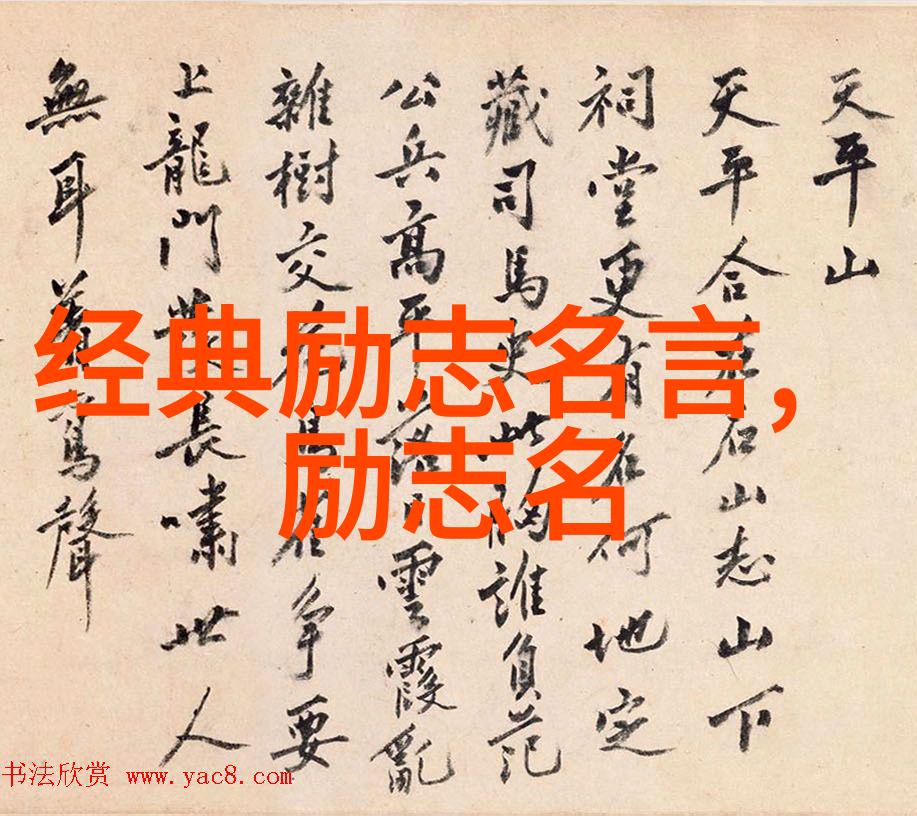 天平山
天平合名山志山下
祠堂更有何地定
藏司馬史此誰負范
公兵高平落日雲霞亂
雜樹交花鳥雀爭要
上龍門發長嘯世人
無耳著聲
经典励志名言,
励志名
书法欣赏 www.yac8.com